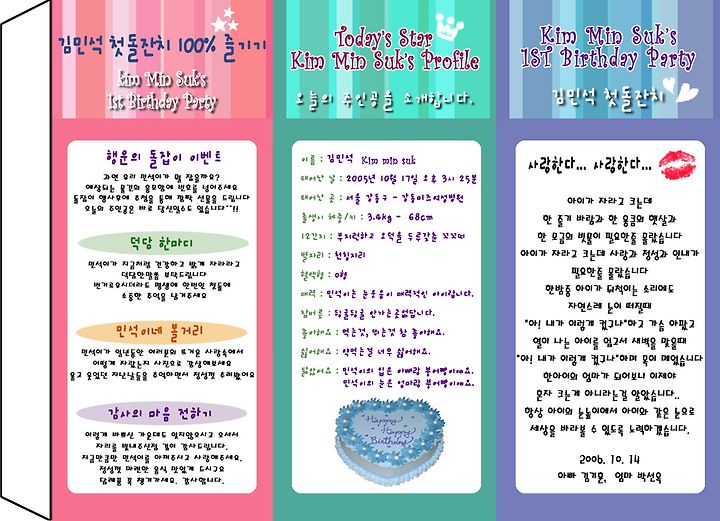 김민석 첫돌잔치 100% 즐기기
kim Min Suk's
1st Birthday Party
행운의 돌잡이 이벤트
과연 우리 민석이가 뭘 잡을까요?
예상되는 물건의 응모함에 번호를 넣어주세요
돌잡이 행사후에 추첨을 통해 깜짝 선물을 드립니다
오늘의 주인공은 바로 당신일수도 있습니다^^!!
덕담 한마디
민석이가 지금처럼 건강하고 밝게 자라라고
덕담한말씀 부탁드립니다
번거로우시더라도 평생에 한번인 첫돌에
소중한 추억을 남겨주세요
민석이네 볼거리
민석이가 일년동안 여러분의 뜨거운 사랑속에서
어떻게 자랐는지 사진으로 감상해보세요
울고 웃었던 지난날들을 추억하면서 정성껏 꾸며봤어요
감사의 마음 전하기
이렇게 바쁘신 가운데도 잊지않으시고 오셔서
자리를 빛내주신점 깊이 감사드립니다.
지금만큼만 민석이를 아껴주시고 사랑해주세요.
정성껏 마련한 음식 맛있게 드시구요
답례품 꼭 챙겨가세요. 감사합니다.
Today's Star
Kim Min Suk's Profile
오늘의 주인공을 소개합니다.
이름 : 김민석 Kim min suk
태어난 날 : 2005년 10월 17일 오후 3시 25분
태어난 곳 : 서울 강동구 - 강동미즈여성병원
출생시 체중/키 : 3.4kg - 68cm
12간지 : 부지런하고 오덕을 두루갖춘 꼬꼬띠
별자리 : 천칭자리
혈액형 : O형
매력 : 민석이는 눈웃음이 매력적인 아이랍니다.
잠버릇 : 뒹굴뒹굴 안가는곳없답니다.
좋아해요 : 먹는것, 뛰는것 참 좋아해요.
싫어해요 : 약먹는걸 너무 싫어해요.
닮았어요 : 민석이의 입은 아빠랑 붕어빵이에요.
민석이의 눈은 엄마랑 붕어빵이에요.
Happy
Happy
Birthday
Kim Min Suk's
1ST Birthday Party
김민석 첫돌잔치
사랑한다... 사랑한다...
아이가 자라고 크는데
한 줄기 바람과 한 웅큼의 햇살과
한 모금의 빗물이 필요한줄 몰랐습니다
아이가 자라고 크는데 사랑과 정성과 인내가
필요한줄 몰랐습니다
한밤중 아이가 뒤척이는 소리에도
자연스레 눈이 떠질때
"아! 내가 이렇게 컸구나"하고 가슴 아팠고
열이 나는 아이를 업고서 새벽을 맞을때
"아! 내가 이렇게 컸구나"하며 목이 메였습니다
한아이의 엄마가 되어보니 이제야
혼자 크는게 아니라는걸 알았습니다..
항상 아이의 눈높이에서 아이와 같은 눈으로
세상을 바라볼 수 있도록 노력하겠습니다.
2006. 10. 14
아빠 김기훈, 엄마 박선옥